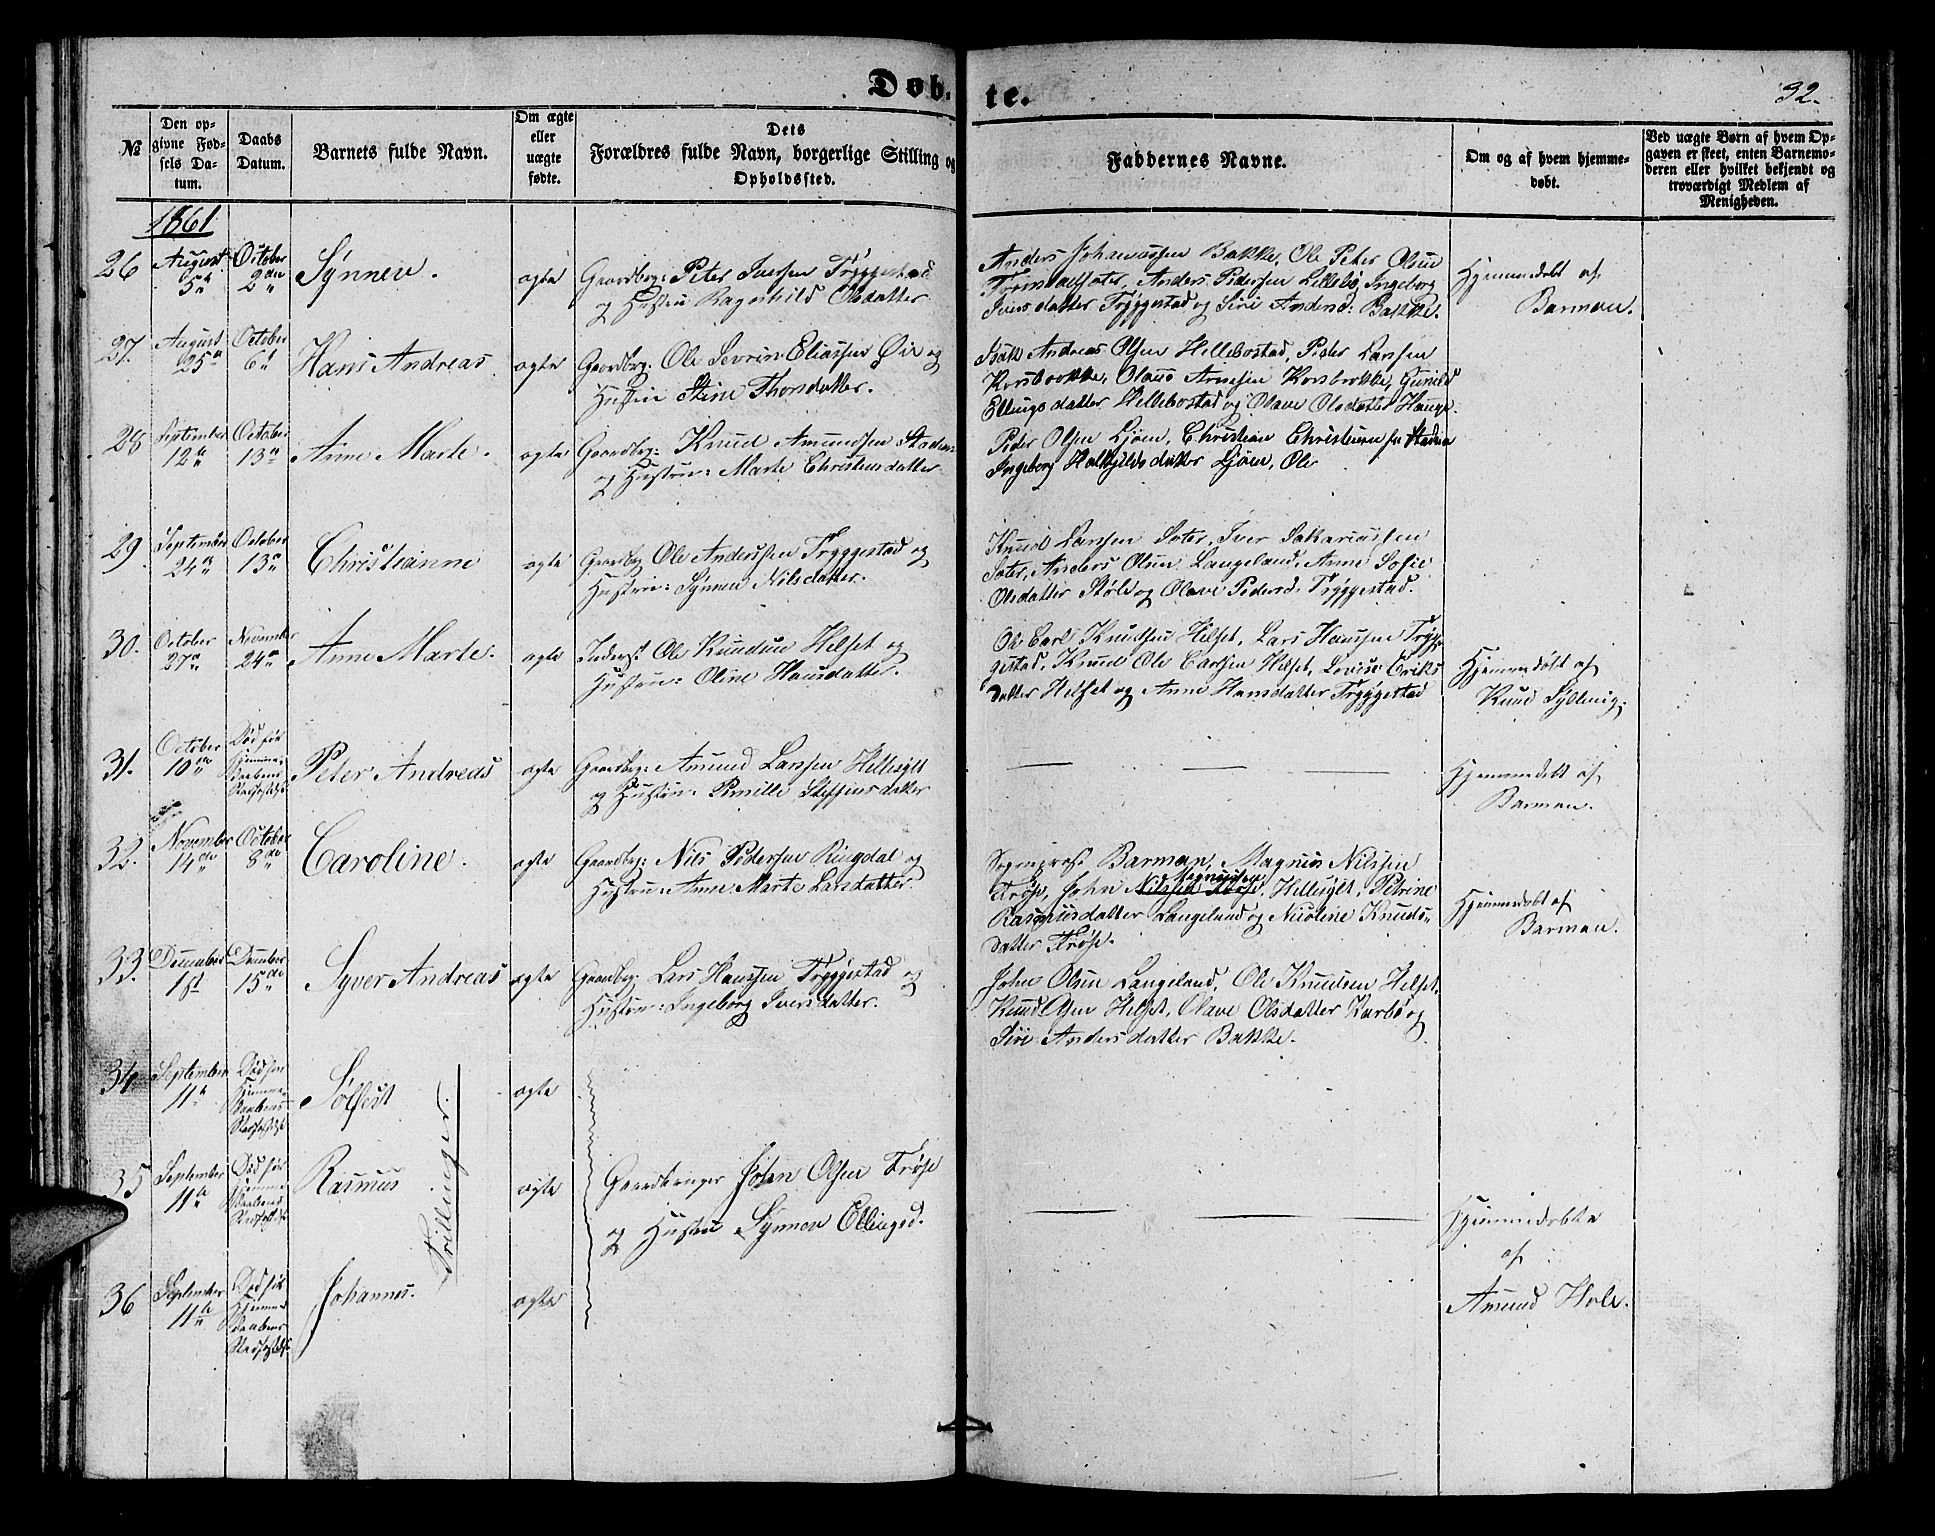 Døb-
te.
32.
№
Den op-
givne Fød-
sels Da-
tum.
Daabs
Datum.
Barnets fulde Navn.
Om ægte
eller
uægte
fødte.
Dets
Forældres fulde Navn, borgerlige Stilling og
Opholdssted.
Faddernes Navne.
Om og af hvem hjemme-
døbt.
Ved uægte Børn af hvem Op-
gaven er skeet, enten Barnemo-
deren eller hvilket bekjendt og
troværdigt Medlem af
Menigheden.
1861
26 August 5te October 2den Synnev. ægte
Gaardbrg: Peter Iversen Tryggestad
og Hustru Ragnhild Olsdatter
Anders Johannessen Bakke, Ole Peter Olsen
Anders Pedersen Lillebø, Ingeborg
Iversdatter Tryggestad og Siri Andersd: Bakke.
Hjemmedøbt af
Barman.
27. August 25de October 6te Hans Andreas ægte
Gaardbrg: Ole Sevrin Eliassen Øie og
Hustru Stine Thorsdatter.
Andreas Olsen Hellebostad, Peder Larsen
Korsbrekke, Olaus Arnesen Korsbrekke, Gunild
Ellingsdatter Hellebostad og Olave Olsdatter Hauge.
28 September 12te October 13de Anne Marte. ægte
Gaardbrg: Knud Amundsen Staden
og Hustru: Marte Christensdatter
Peder Olsen Ljøen, Christian Christensen Staden
Ingeborg Halkjeldsdatter Ljøen, Ole
29. September 24de October 13de Christianne ægte
Gaardbrg Ole Anderssen Tryggestad og
Hustru: Synnev Nilsdatter.
Knud Larsen Sæter, Iver Sakariassen
Sæter, Anders Olsen Langeland, Anne Sofie
Olsdatter Støle og Olave Pedersd: Tryggestad.
30. October 27de November 24de Anne Marte. ægte
Inderst Ole Knudsen Helset og
Hustru: Oline Hansdatter.
Ole Carl Knudsen Helset, Lars Hanssen Tryg-
gestad, Knud Ole Larssen Helset, Lovise Eriks
datter Helset og Anne Hansdatter Tryggestad
Hjemmedøbt af
Knud Sylling.
31. October 10de Død før
Hjemme-
daabens
Stadfæstelse
Peter Andreas ægte
Gaardbrg: Amund Larssen Hellesylt
og Hustru: Pernille Steffensdatter
Hjemmedøbt af
Barman.
32. November 14de October 8de Caroline. ægte
Gaardbrg: Nils Pedersen Ringdal og
Hustru: Anne Marte Larsdatter.
Sogneprest Barman, Magnus Nilssen
Frøse, John Nilssen Frøse Magnussen, Hellesylt, Petrine
Rasmusdatter Langeland og Nicoline Knuds-
datter Frøse.
Hjemmedøbt af
Barman.
33. December 1st December 15de Syver Andreas ægte
Gaardbrg: Lars Hanssen Tryggestad og
Hustru: Ingeborg Iversdatter.
John Olsen Langeland, Ole Knudsen Helset,
Knud Olsen Helset, Olave Olsdatter Karbø og
Siri Andersdatter Bakke.
34 September 11te Død før
Hjemme-
daabens
Stadfæstelse
Sølfest ægte
Trillinger.
35 September 11te Død før
Hjemme
daabens
Stadfæstelse
Rasmus ægte
Gaardbruger John Olsen Frøse
og Hustru Synnev Ellingsd.
Hjemmedøbte
af
Amund Hole.
36 September 11te Død før
Hjemme
daabens
Stadfæstelse
Johannes. ægte